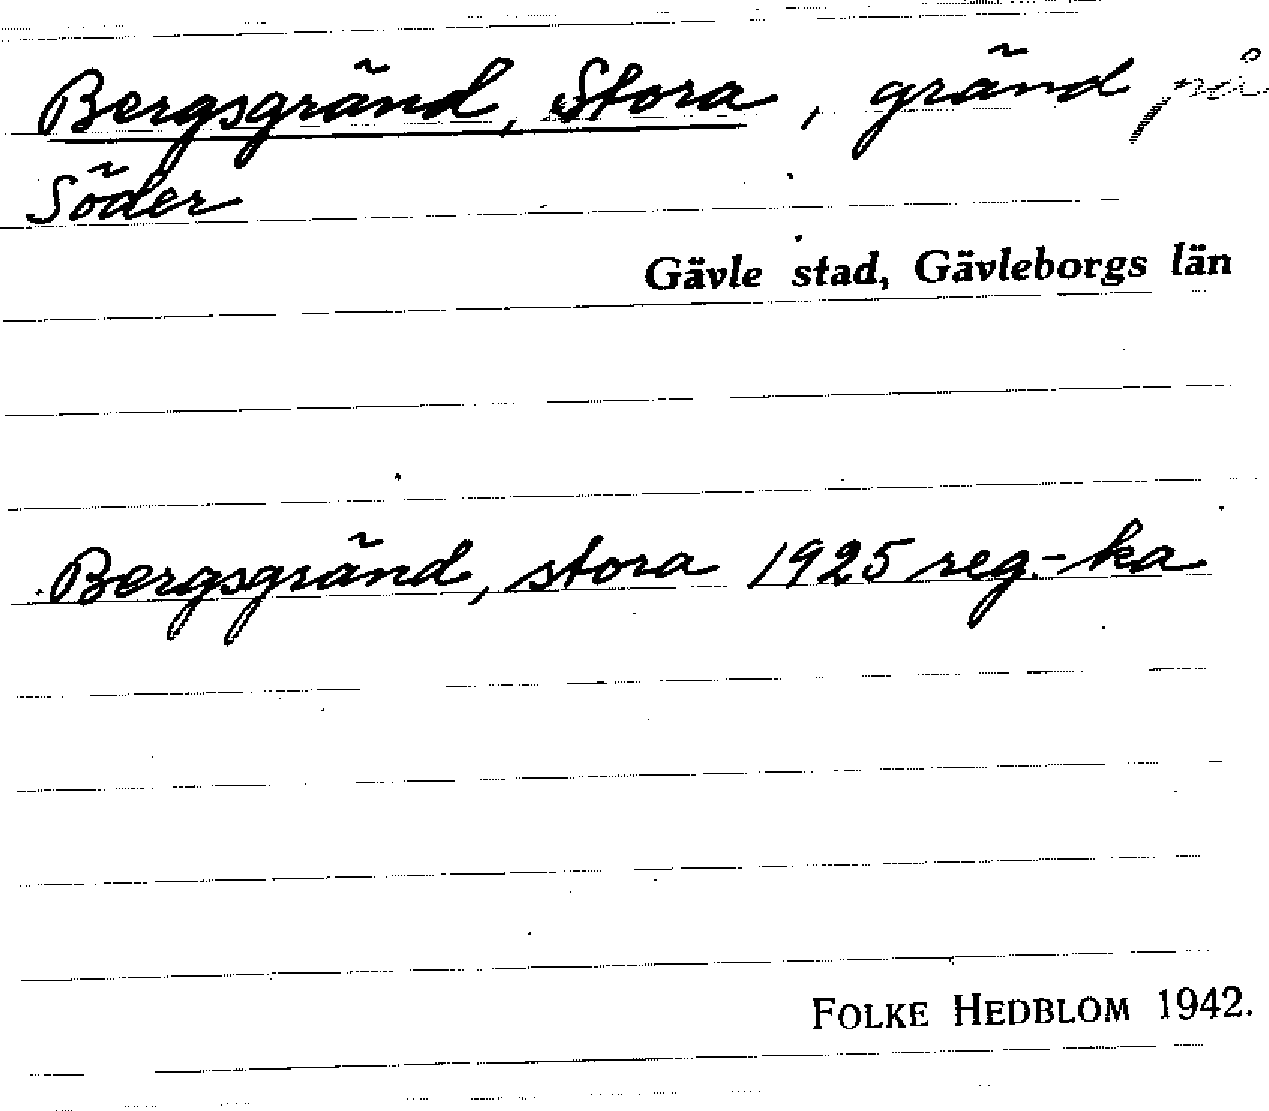 Bergsgränd, Stora, gränd på
Söder
Gävle stad, Gävleborgs län
Bergsgränd, stora 1925 reg.-ka
FOLKE HEDBLOM 1942.